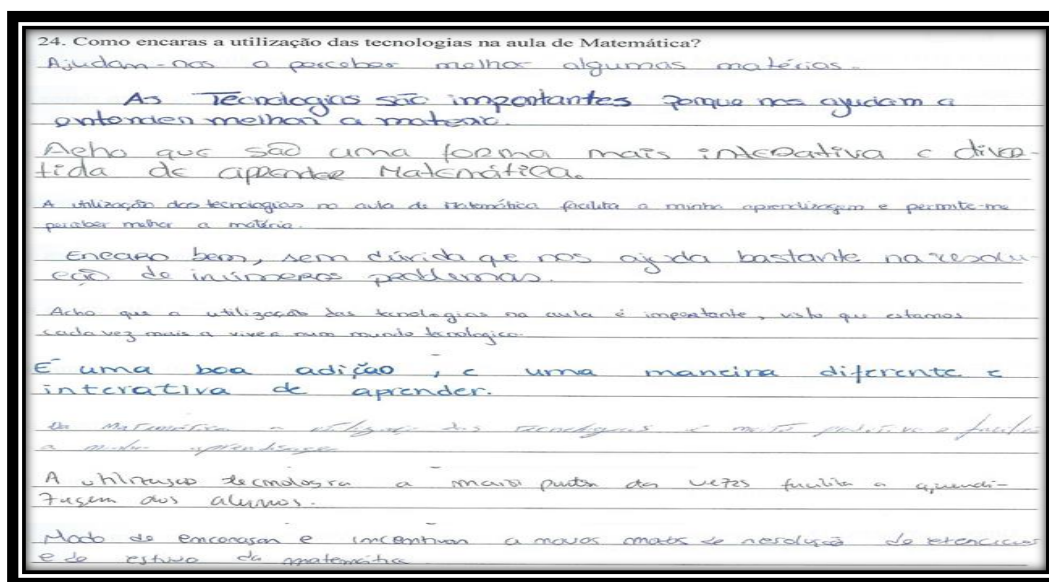 24. Como encaras a utilização das tecnologias na aula de Matemática?
Ajudam-nos a perceber melhor algumas matérias.
As Tecnologias são importantes porque nos ajudam a
entender melhor a materia.
Acho que são uma forma mais interativa e diver-
tida de aprender Matemática.
A utilização das tecnologias na aula de Matemática facilita a minha aprendizagem e permite-me
perceber melhor a matéria.
Encaro bem, sem dúvida que nos ajuda bastante na resolu-
ção de inúmeros problemas.
Acho que a utilização das tecnologias na aula é importante, visto que estamos
cada vez mais a viver num mundo tecnologico.
É uma boa adição, e uma maneira diferente e
interativa de aprender.
Matemática a utilização das tecnologias é muito e facilita
a minha aprendizagem
A utilização tecnologia a maior parte das vezes facilita a aprendi-
zagem dos alunos.
Modo de encorajar e incentivar a novos modos de resolução de exercicios
e de estudo da matemática